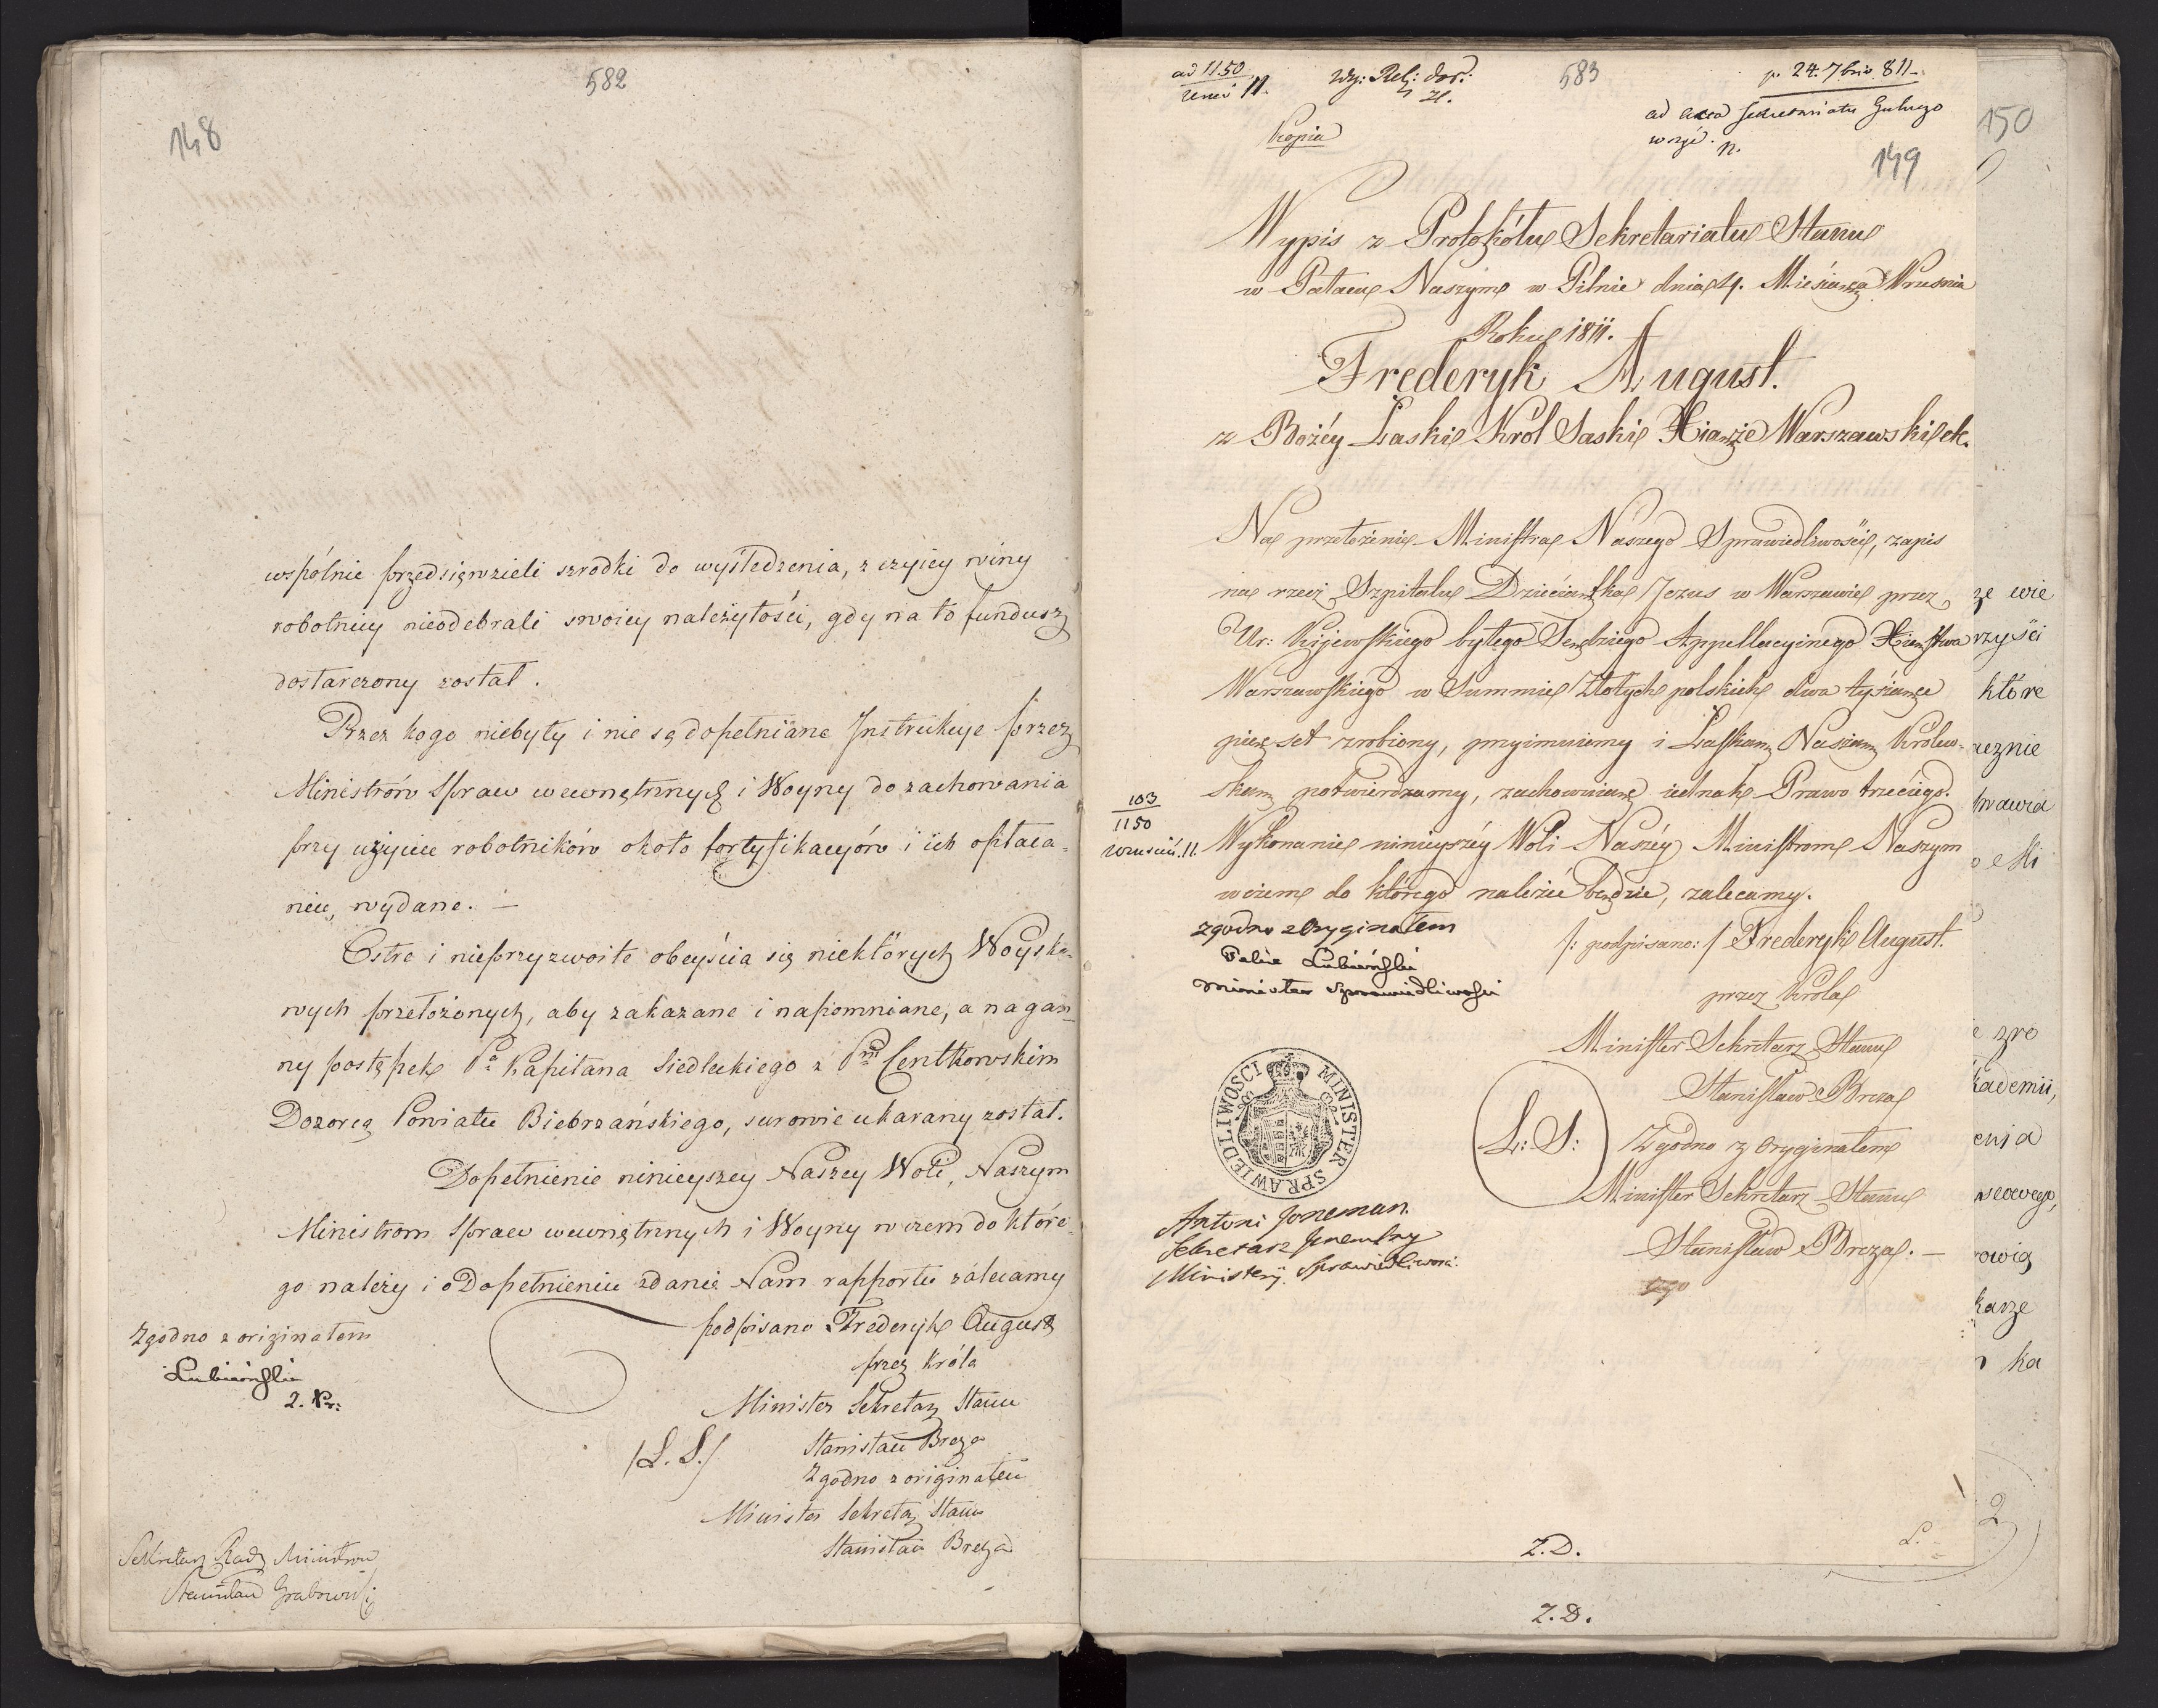 582
148
wspólnie przedsięwzieli szrodki do wyśledzenia, z czyiey winy
robotnicy nieodebrali swoiey należytości, gdy na to fundusz
dostarczony został.
Przez kogo niebyły i nie są dopełniane Jnstrukcye przez
Ministrów Spraw wewnętrznych i Woyny do zachowania
przy użyciu robotników około fortyfikacyów i ich opłaca-
niu, wydane. —
Ostre i nieprzyzwoite obeyścia się niektórych Woysko-
wych przełożonych, aby zakazane i napomniane, a nagan-
ny postępek Pa Kapitana Siedleckiego z Pm Centkowskim
Dozorcą Powiatu Biebrzańskiego, surowie ukarany został.
Dopełnienie ninieyszey Naszey Woli, Naszym
Ministrom Spraw wewnętrznych i Woyny w czem do które-
go należy i o Dopełnieniu zdanie Nam rapportu zalecamy
podpisano Frederyk August
przez Króla
Minister Sekretarz Stanu
/L.S./ Stanisław Breza
Zgodno z originałem
Minister Sekretarz Stanu
Stanisław Breza
Zgodno z originałem
Lubieński
Sekretarz Rady Ministrów
Stanisław Grabowski
ad 1150 11.
583
p. 24. 7bris 811
ad acta Sekretariatu
Kopia
149
Wypis z Protokółu Sekretariatu Stanu
w Pałacu Naszym w Pilnie dnia 4. Miesiąca Wrusnia
Roku 1811.
Frederyk August.
z Bożéy Łaski Król Saski Xiąże Warszawski etc.
Na przełożenie Ministra Naszego Sprawiedliwości, zapis
na rzecz Szpitalu Dzieciątka Jezus w Warszawie przez
Ur: Kijewskiego byłego Sędziego Appellacyinego Xięstwa
Warszawskiego w Summie Złotych polskich dwa tysiące
pięć set zrobiony, przyimuiemy i Łaską Naszą Królew-
ską potwierdzamy, zachowuiąc iednak Prawo trzeciego.
103
1150
Wykonanie ninieyszéy Woli Naszéy Ministrom Naszym
w czem do którego należeć będzie, zalecamy.
/: podpisano: / Frederyk August.
przez Króla
Minister Sekretarz Stanu
Stanisław Breza
L: S: Zgodno z oryginałem
Minister Sekretarz Stanu
Stanisław Breza. —
zgodno z Oryginałem
Felix Lubieński
Minister Sprawiedliwości
MINISTER SPRAWIEDLIWOSCI
Antoni Joneman.
Sekretarz Jeneralny
Ministerij. Sprawiedliwosci.
Z.D.
Z.D.
150
ze wie
rzyści
które
cznie
e zro
kademii,
enia
karze
ka
2